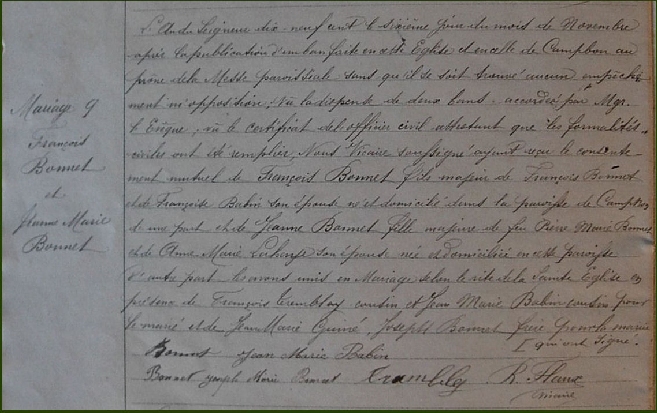 Mariage 9
François
Bonnet
et
Jeanne Marie
Bonnet
L'an du Seigneur dix-neuf cent le sixième jour du mois de Novembre
après la publication d'un ban faite en cette Eglise et en celle de Campbon au
prône de la Messe paroissiale sans qu'il se soit trouvé aucun empêche
ment ni opposition; vu la dispense de deux bans, accordée par Mgr.
l'Evêque, vu le certificat de l'officier civil attestant que les formalités
civiles ont été remplies, Nous Vicaire soussigné ayant reçu le consente
ment mutuel de François Bonnet fils majeur de François Bonnet
et de Françoise Babin son épouse né et domicilié dans la paroisse de Campbon
d'une part et de Jeanne Bonnet fille majeure de feu Pierre Marie Bonnet
et de Anne Marie son épouse née et domiciliée en cette paroisse
d'autre part les avons unis en Mariage selon le rite de la Sainte Eglise en
présence de François Tremblay cousin et Jean Marie Babin cousin pour
le marié et de Jean Marie Guiné, Joseph Bonnet frère pour la mariée
qui ont signé.
Bonnet Jean Marie Babin
Bonnet Joseph Marie Bonnet R.
vicaire